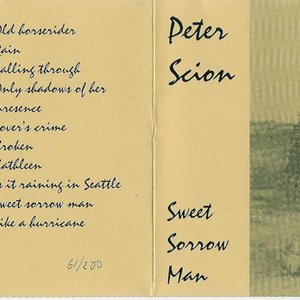 Old horserider
ain
alling through
Only shadows of her
presence
over's crime
roken
athleen
s it raining in Seattle
weet sorrow man
ike a hurricane
61/200
Peter
Scion
Sweet
Sorrow
Man